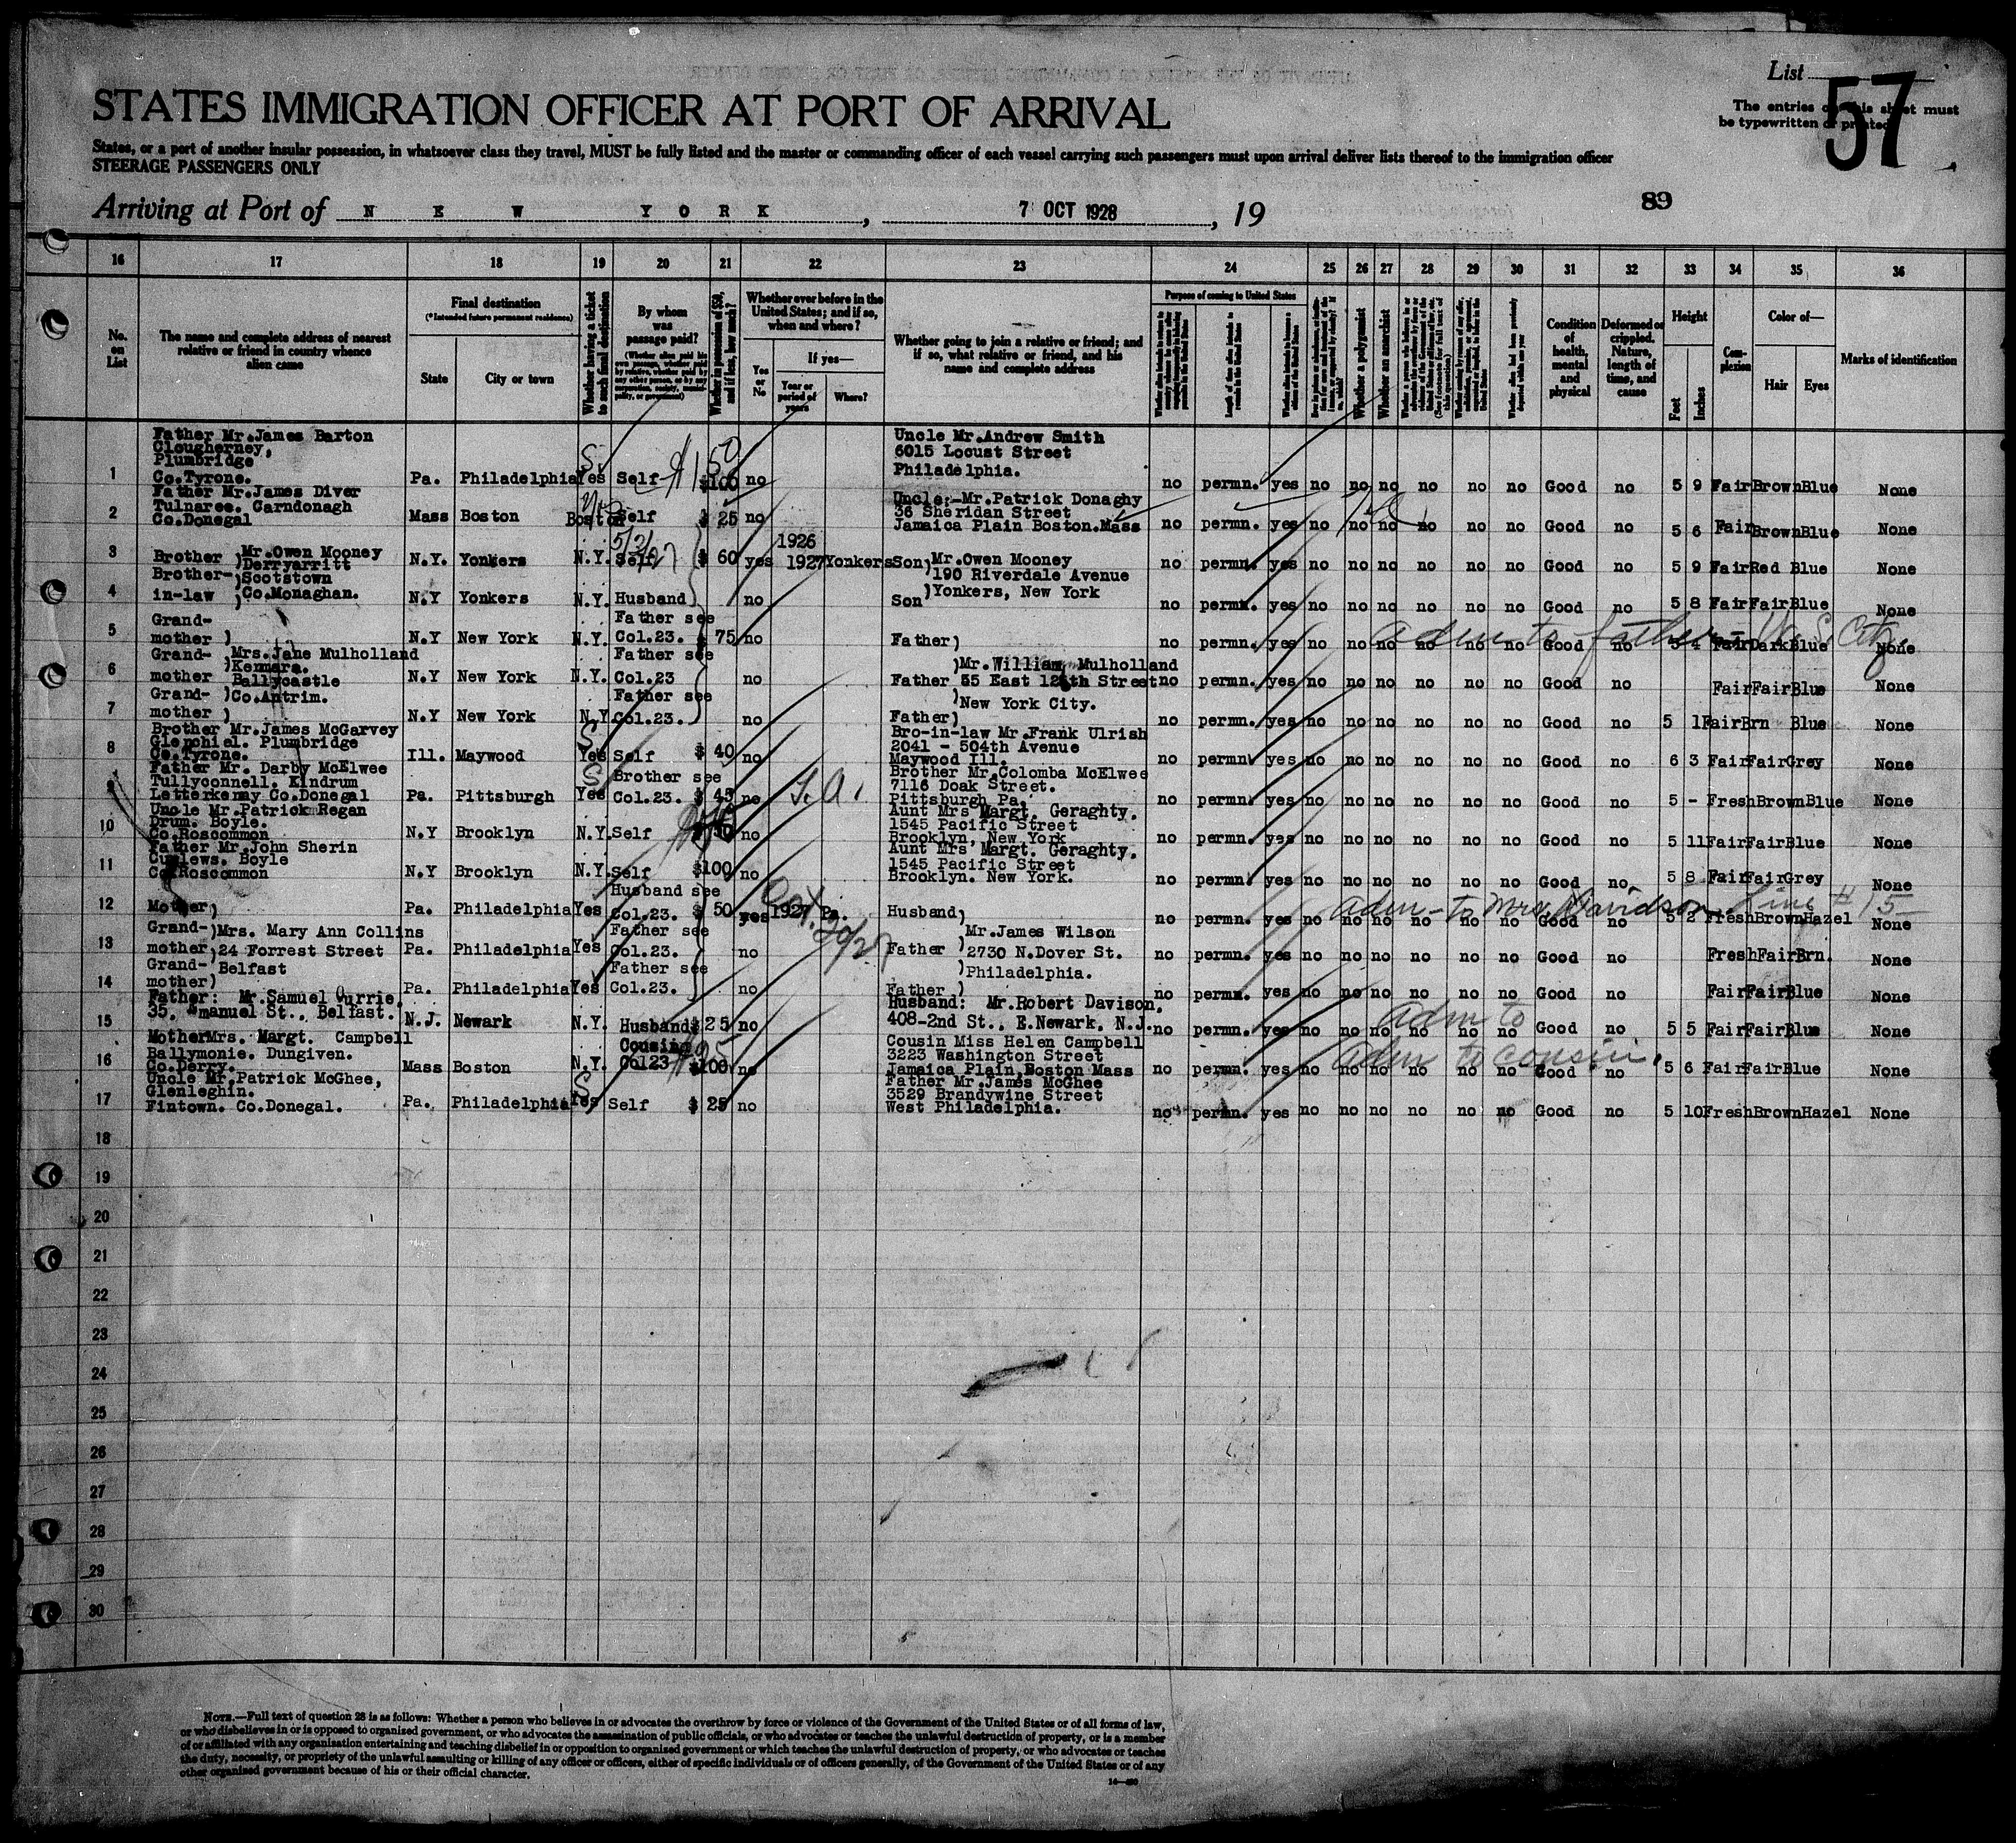 List
57
The entries on this sheet must
be typewritten or printed
STATES IMMIGRATION OFFICER AT PORT OF ARRIVAL
States, or a port of another insular possession, in whatsoever class they travel, MUST be fully listed and the master or commanding officer of each vessel carrying such passengers must upon arrival deliver lists thereof to the immigration officer
STEERAGE PASSENGERS ONLY
Arriving at Port of N E W Y O R K, 7 OCT 1928, 19
89
16 17 18 19 20 21 22 23 24 25 26 27 28 29 30 31 32 33 34 35 36
No. on List
The name and complete address of nearest relative or friend in country whence alien came
Final destination
(*Intended future permanent residence)
State
City or town
Whether having a ticket to such final destination
By whom was passage paid?
Whether in possession of $50, and if less, how much?
Whether ever before in the United States; and if so, when and where?
Yes or No
If yes—
Year or period of years
Where?
Whether going to join a relative or friend; and if so, what relative or friend, and his name and complete address
Purpose of coming to United States
Length of time alien intends to remain in the United States
Whether alien intends to become a citizen of the United States
Whether a polygamist
Whether an anarchist
Condition of health, mental and physical
Deformed or crippled. Nature, length of time, and cause
Height
Feet
Inches
Complexion
Color of—
Hair
Eyes
Marks of identification
1 Father Mr.James Barton
Clougherney,
Plumbridge
Co.Tyrone. Pa. Philadelphia Yes Self $100 no Uncle Mr.Andrew Smith
6015 Locust Street
Philadelphia. no permn. yes no no no no no no Good no 5 9 Fair Brown Blue None
2 Father Mr.James Diver
Tulnaree. Carndonagh
Co.Donegal Mass Boston Boston Self $ 25 no Uncle:-Mr.Patrick Donaghy
36 Sheridan Street
Jamaica Plain Boston.Mass no permn. yes no no no no no no Good no 5 6 Fair Brown Blue None
3 Brother ) Mr.Owen Mooney
)Derryarritt N.Y. Yonkers N.Y. Self $ 60 yes 1926
1927 Yonkers Son) Mr.Owen Mooney
)190 Riverdale Avenue no permn. yes no no no no no no Good no 5 9 Fair Red Blue None
4 Brother-)Scotstown
in-law )Co.Monaghan. N.Y Yonkers N.Y. Husband no Son )Yonkers, New York no permn. yes no no no no no no Good no 5 8 Fair Fair Blue None
5 Grand-
mother ) N.Y New York N.Y. Father see
Col.23. $ 75 no Father) no permn. yes no no no no no no Good no 5 4 Fair Dark Blue None
adm to father U.S. Citz
6 Grand- Mrs.Jane Mulholland
)Kenmara.
mother Ballycastle N.Y New York N.Y. Father see
Col.23 no )Mr.William Mulholland
Father 55 East 128th Street no permn. yes no no no no no no Good no Fair Fair Blue None
7 Grand- )Co.Antrim.
mother ) N.Y New York N.Y. Father see
Col.23. no )New York City.
Father) no permn. yes no no no no no no Good no 5 1 Fair Brn Blue None
8 Brother Mr.James McGarvey
Glenchiel. Plumbridge
Co.Tyrone. Ill. Maywood Yes Self $ 40 no Bro-in-law Mr.Frank Ulrish
2041 - 504th Avenue
Maywood Ill. no permn yes no no no no no no Good no 6 3 Fair Fair Grey None
9 Father Mr. Darby McElwee
Tullyconnell. Kindrum
Letterkenny Co.Donegal Pa. Pittsburgh Yes Brother see
Col.23. $ 45 no Brother Mr.Colomba McElwee
7116 Doak Street.
Pittsburgh Pa. no permn. yes no no no no no no Good no 5 - Fresh Brown Blue None
10 Uncle Mr.Patrick Regan
Drum. Boyle.
Co.Roscommon N.Y Brooklyn N.Y. Self no Aunt Mrs Margt. Geraghty.
1545 Pacific Street
Brooklyn, New York no permn. yes no no no no no no Good no 5 11 Fair Fair Blue None
11 Father Mr.John Sherin
Curlews. Boyle
Co.Roscommon N.Y Brooklyn N.Y. Self $100 no Aunt Mrs Margt. Geraghty.
1545 Pacific Street
Brooklyn. New York. no permn. yes no no no no no no Good no 5 8 Fair Fair Grey None
12 Mother) Pa. Philadelphia Yes Husband see
Col.23. $ 50 yes 1927 Pa. Husband) no permn. yes no no no no no no Good no 5 2 Fresh Brown Hazel None
adm-to Mrs. Davidson Line # 15
13 Grand-)Mrs. Mary Ann Collins
mother)24 Forrest Street Pa. Philadelphia Yes Father see
Col.23. no Mr.James Wilson
Father )2730 N.Dover St. no permn. yes no no no no no no Good no Fresh Fair Brn. None
14 Grand-)Belfast
mother) Pa. Philadelphia Yes Father see
Col.23. no )Philadelphia.
Father ) no permn. yes no no no no no no Good no Fair Fair Blue None
15 Father: Mr.Samuel Currie.
35, Emanuel St., Belfast. N.J. Newark N.Y. Husband $ 25 no Husband: Mr.Robert Davison,
408-2nd St., E.Newark, N.J. no permn. yes no no no no no no Good no 5 5 Fair Fair Blue None
adm to
16 Mother Mrs. Margt. Campbell
Ballymonie. Dungiven.
Co.Derry. Mass Boston N.Y. Cousin
Col23 $100 no Cousin Miss Helen Campbell
3223 Washington Street
Jamaica Plain,Boston Mass no permn. yes no no no no no no Good no 5 6 Fair Fair Blue None
adm to cousin.
17 Uncle Mr.Patrick McGhee,
Glenleghin.
Fintown. Co.Donegal. Pa. Philadelphia Yes Self $ 25 no Father Mr.James McGhee
3529 Brandywine Street
West Philadelphia. no permn. yes no no no no no no Good no 5 10 Fresh Brown Hazel None
18
19
20
21
22
23
24
25
26
27
28
29
30
NOTE.—Full text of question 28 is as follows: Whether a person who believes in or advocates the overthrow by force or violence of the Government of the United States or of all forms of law,
or who disbelieves in or is opposed to organized government, or who advocates the assassination of public officials, or who advocates or teaches the unlawful destruction of property, or is a member
of or affiliated with any organization entertaining and teaching disbelief in or opposition to organized government or which teaches the unlawful destruction of property, or who advocates or teaches
the duty, necessity, or propriety of the unlawful assaulting or killing of any officer or officers, either of specific individuals or of officers generally, of the Government of the United States or of any
other organized government because of his or their official character.